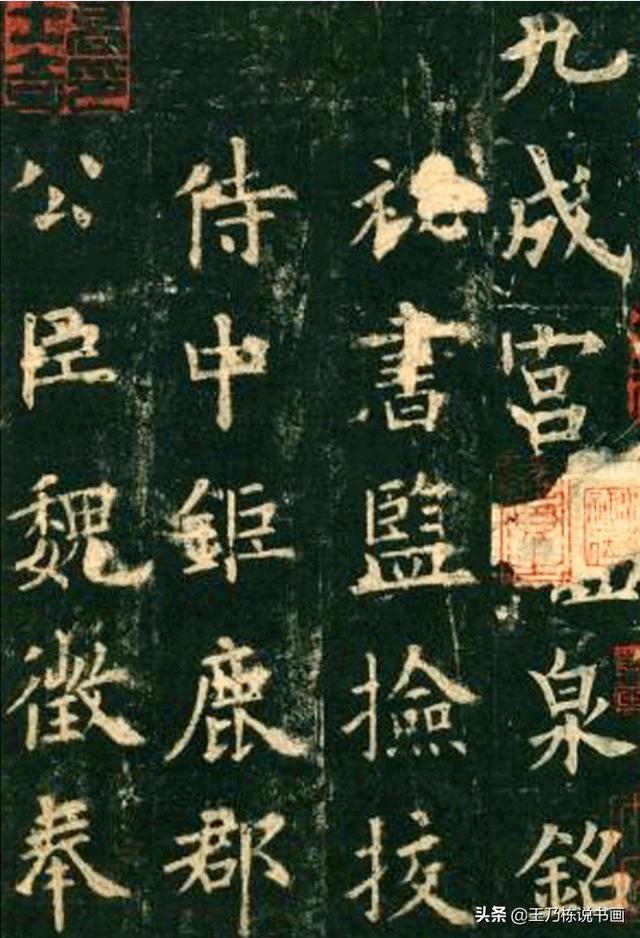 九成宮泉銘
祕書監撿挍
侍中鉅鹿郡
公臣魏徵奉
头条 @王乃栋说书画